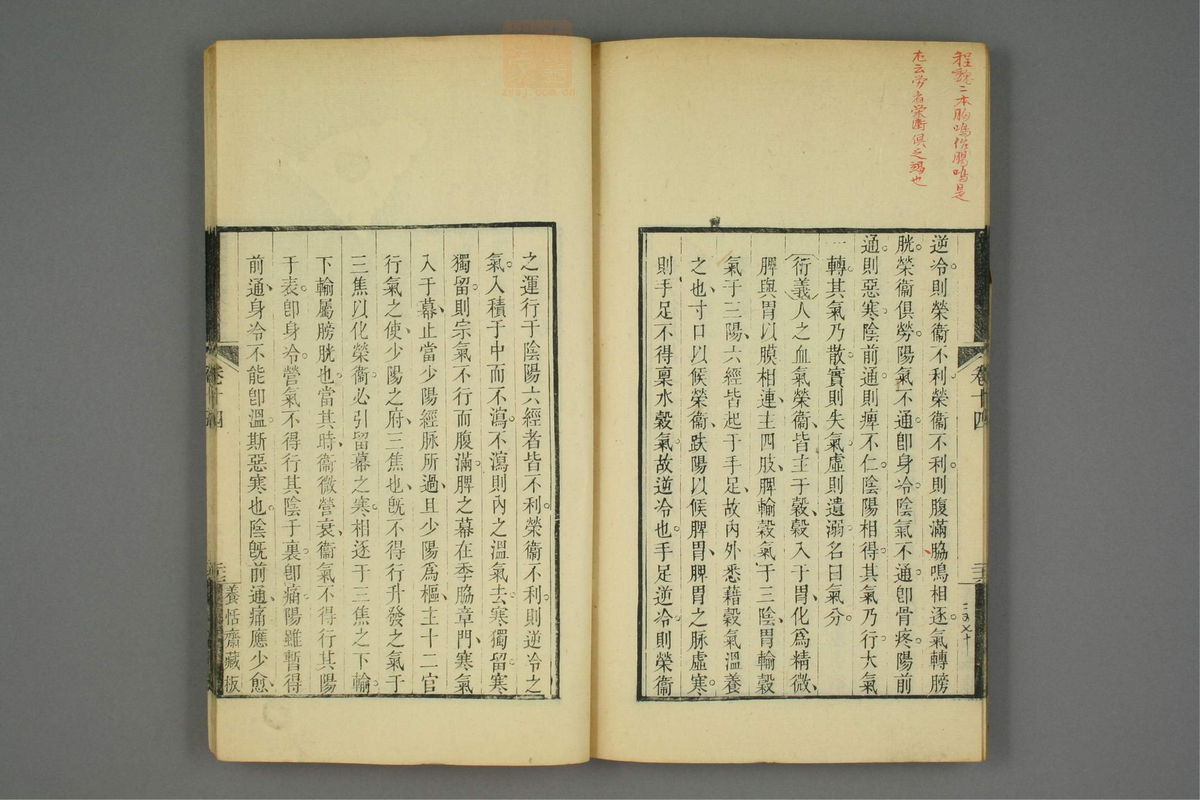 程魏二本脇鳴作腸鳴是
尤云勞者榮衛俱乏竭也
逆冷。則榮衞不利。榮衞不利。則腹滿脇鳴相逐。氣轉膀
胱。榮衞俱勞。陽氣不通。卽身冷。陰氣不通。卽骨疼。陽前
通。則惡寒。陰前通。則痺不仁。陰陽相得。其氣乃行。大氣
一轉。其氣乃散。實則失氣。虛則遺溺。名曰氣分。
衍義人之血氣榮衞、皆主于穀、穀入于胃、化爲精微、
脾與胃以膜相連、主四肢、脾輸穀氣于三陰、胃輸穀
氣于三陽、六經皆起于手足、故內外悉藉穀氣溫養
之也。寸口以候榮衞、趺陽以候脾胃、脾胃之脉虛寒。
則手足不得稟水穀氣。故逆冷也。手足逆冷。則榮衞
卷十四
之運行于陰陽六經者皆不利。榮衞不利。則逆冷之
氣。入積于中而不瀉。不瀉則內之溫氣去。寒獨留。寒
獨留。則宗氣不行而腹滿。脾之幕在季脇章門、寒氣
入于幕、止當少陽經脉所過、且少陽爲樞、主十二官
行氣之使、少陽之府、三焦也、旣不得行升發之氣于
三焦以化榮衞。必引留幕之寒。相逐于三焦之下輸。
下輸屬膀胱也。當其時、衞微營衰、衞氣不得行其陽
于表。卽身冷。營氣不得行其陰于裏。卽痛。陽雖暫得
前通、身冷不能卽溫。斯惡寒也。陰旣前通、痛應少愈、
卷十四
養恬齋藏板